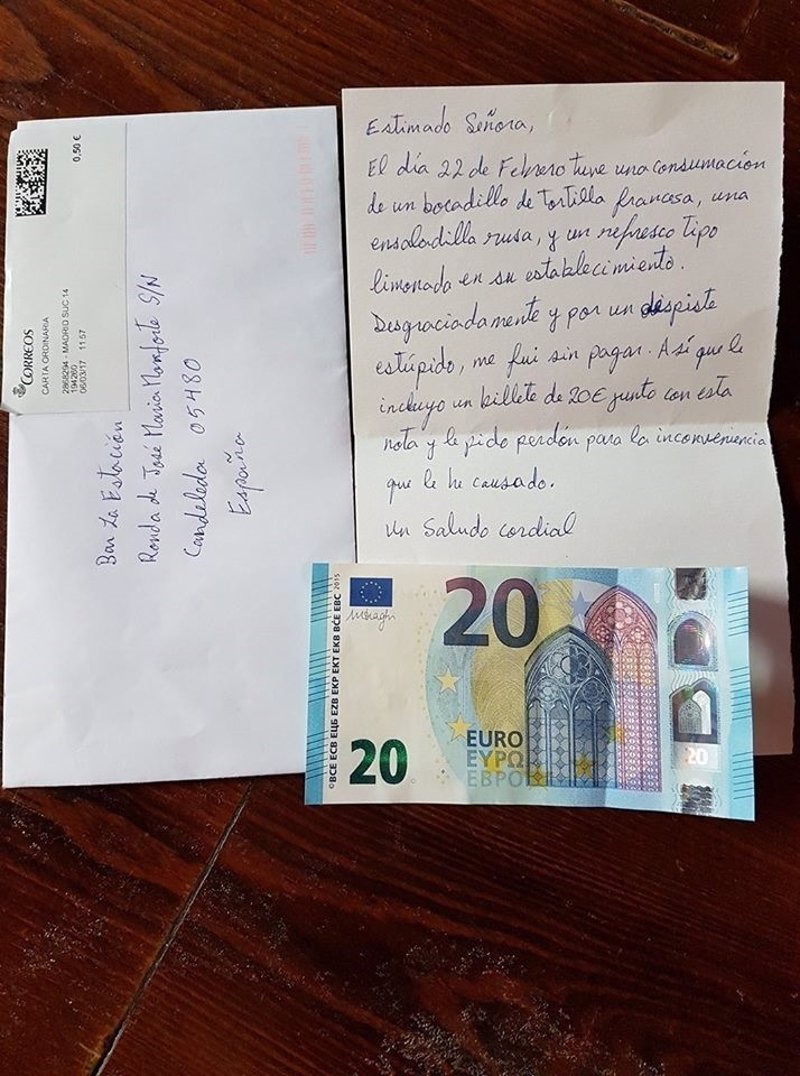 0,50 €
CORREOS
CARTA ORDINARIA
2868294 - MADRID SUC 14
194260
06/03/17 11:57
Bar La Estación
Ronda de José Maria Monforte S/N
Candeleda 05480
España
Estimado Señora,
El día 22 de Febrero tuve una consumación
de un bocadillo de tortilla francesa, una
ensaladilla rusa, y un refresco tipo
limonada en su establecimiento.
Desgraciadamente y por un despiste
estúpido, me fui sin pagar. Así que le
incluyo un billete de 20€ junto con esta
nota y le pido perdón para la inconveniencia
que le he causado.
Un Saludo cordial
©BCE ECB ЕЦБ EZB EKP EKT EKB BĊE EBC 2015
20
20
EURO
ΕΥΡΩ
ЕВРО
20